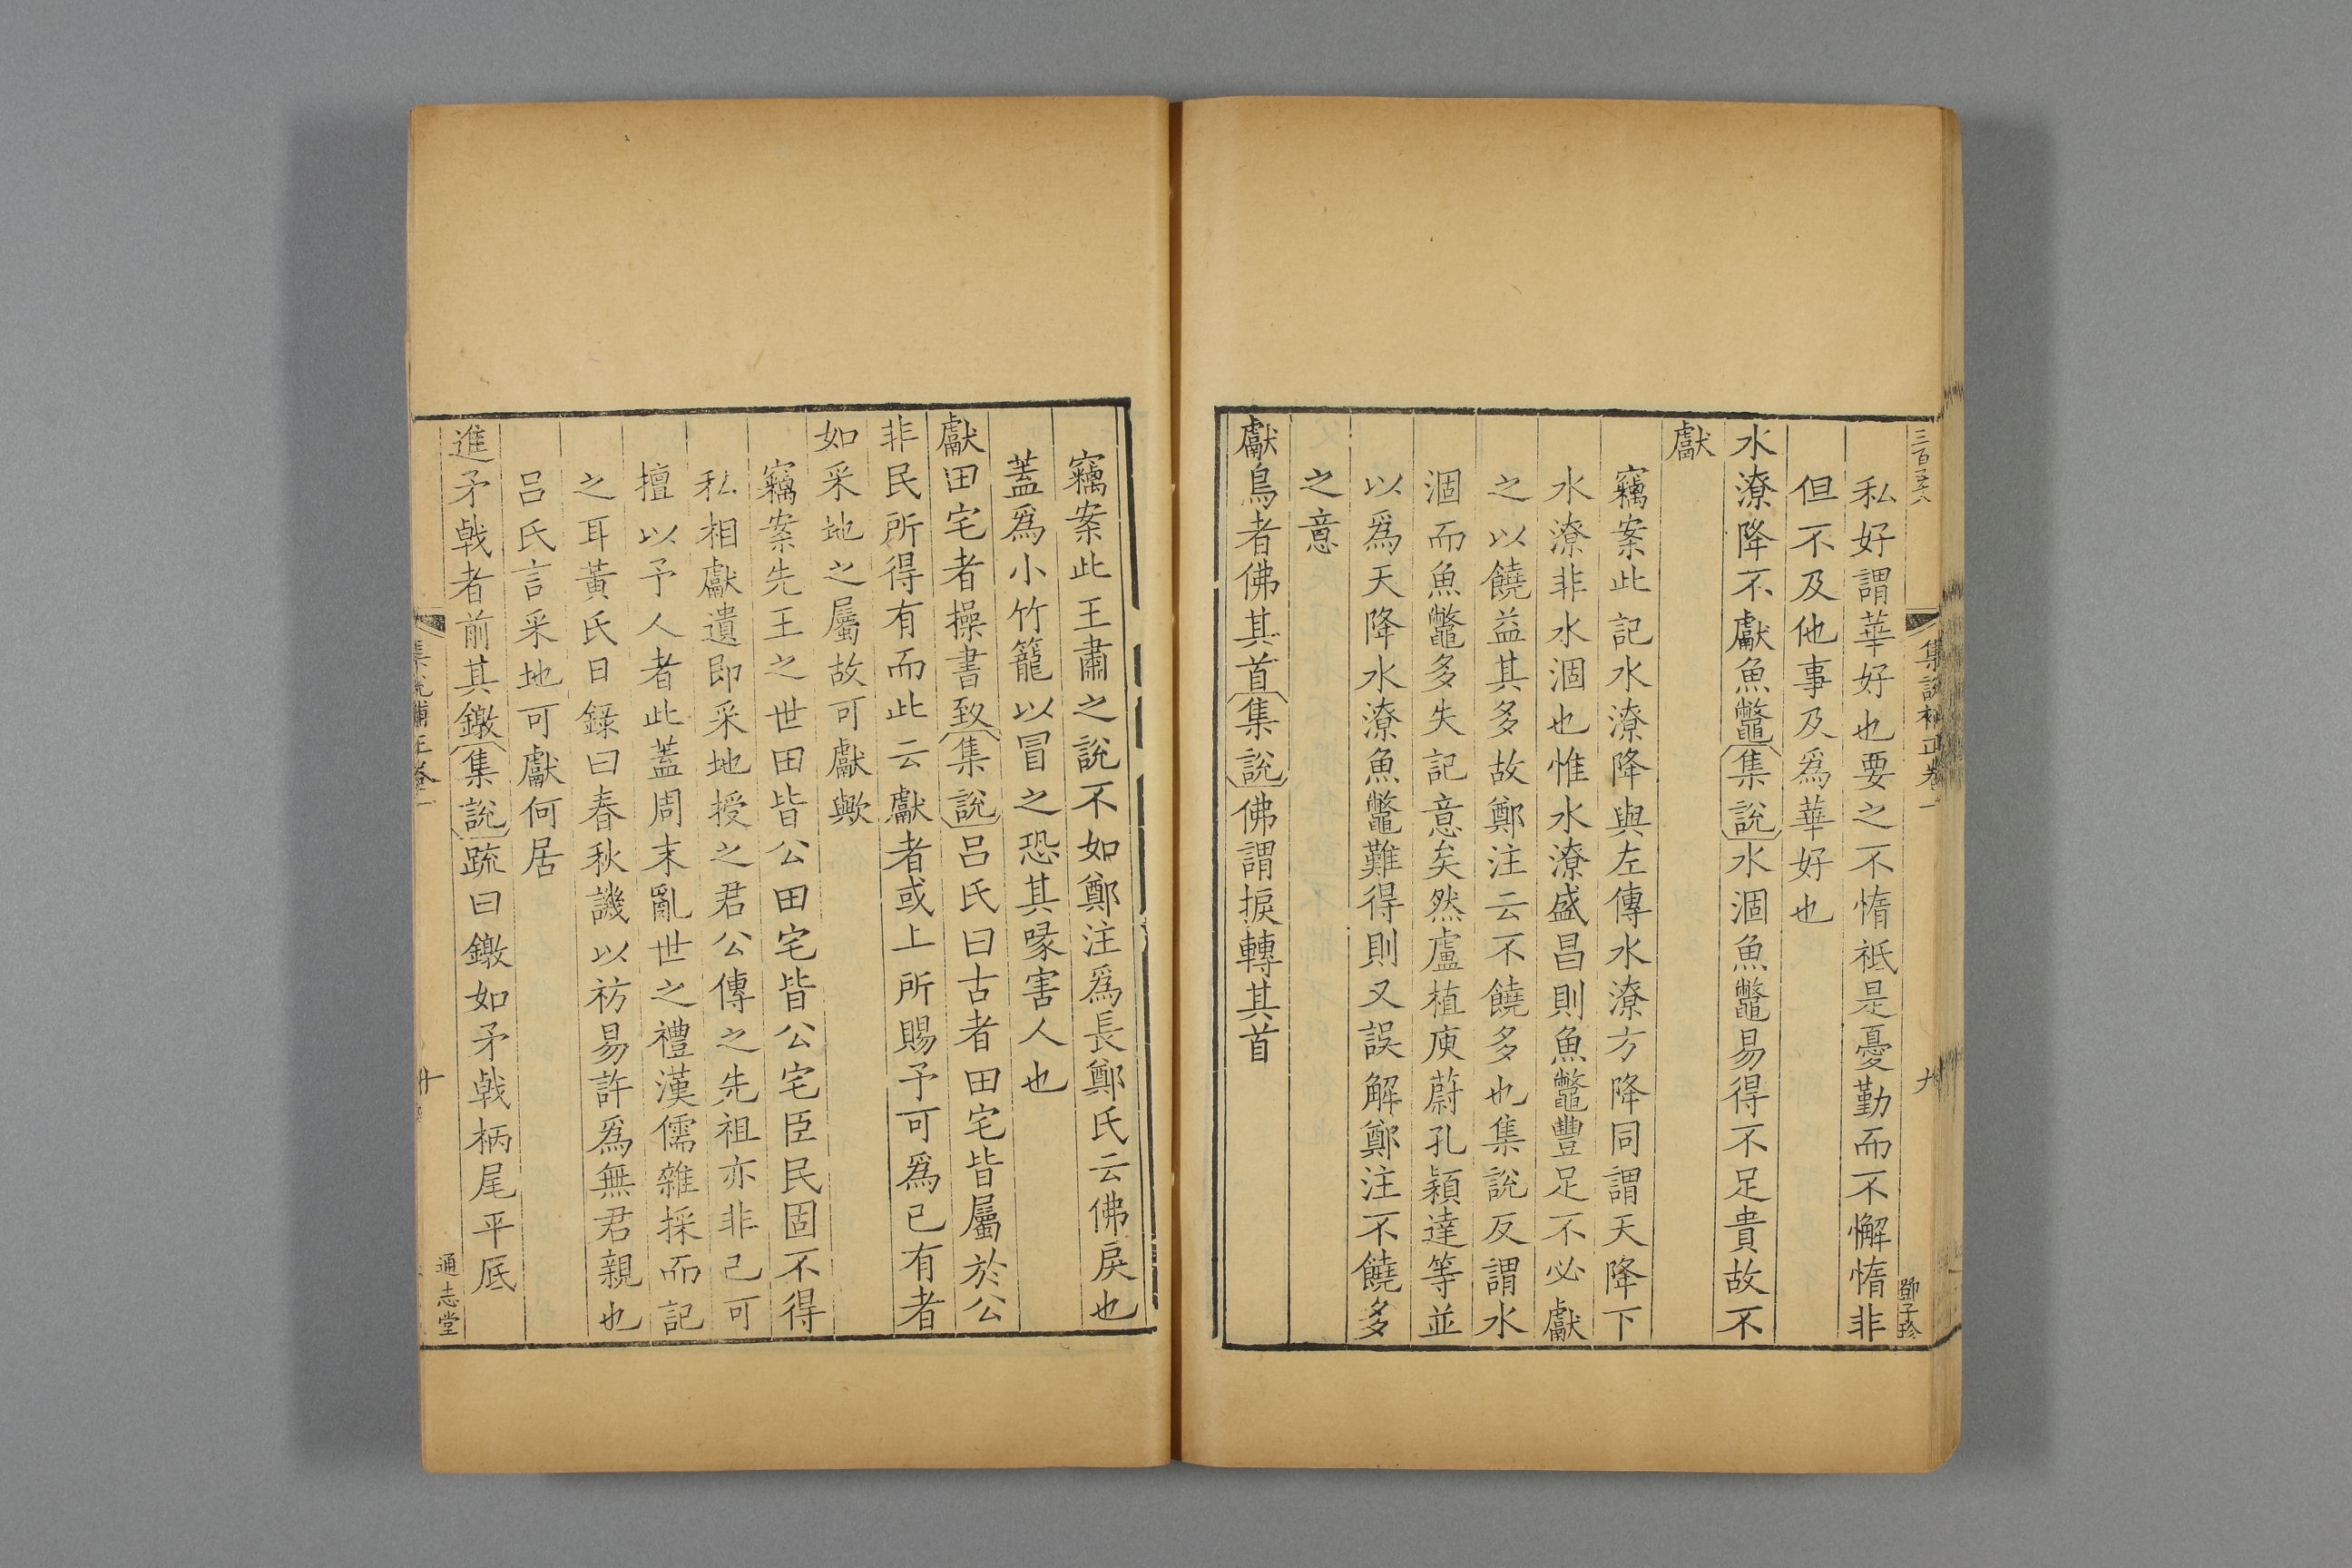 三百五十八
集說補正卷一
九
鄧子珍
私好謂華好也要之不惰祗是憂勤而不懈惰非
但不及他事及為華好也
水潦降不獻魚鼈集說水涸魚鼈易得不足貴故不
獻
竊案此記水潦降與左傳水潦方降同謂天降下
水潦非水涸也惟水潦盛昌則魚鼈豐足不必獻
之以饒益其多故鄭注云不饒多也集說反謂水
涸而魚鼈多失記意矣然盧植庾蔚孔穎達等並
以爲天降水潦魚鼈難得則又誤解鄭注不饒多
之意
獻鳥者佛其首集說佛謂捩轉其首
竊案此王肅之說不如鄭注爲長鄭氏云佛戾也
蓋爲小竹籠以冒之恐其喙害人也
獻田宅者操書致集說呂氏曰古者田宅皆屬於公
非民所得有而此云獻者或上所賜予可爲已有者
如采地之屬故可獻歟
竊案先王之世田皆公田宅皆公宅臣民固不得
私相獻遺即采地授之君公傳之先祖亦非己可
擅以予人者此蓋周末亂世之禮漢儒雜採而記
之耳黃氏日錄曰春秋譏以祊易許爲無君親也
呂氏言采地可獻何居
進矛戟者前其鐓集說疏曰鐓如矛戟柄尾平底
集說補正卷一
十
通志堂